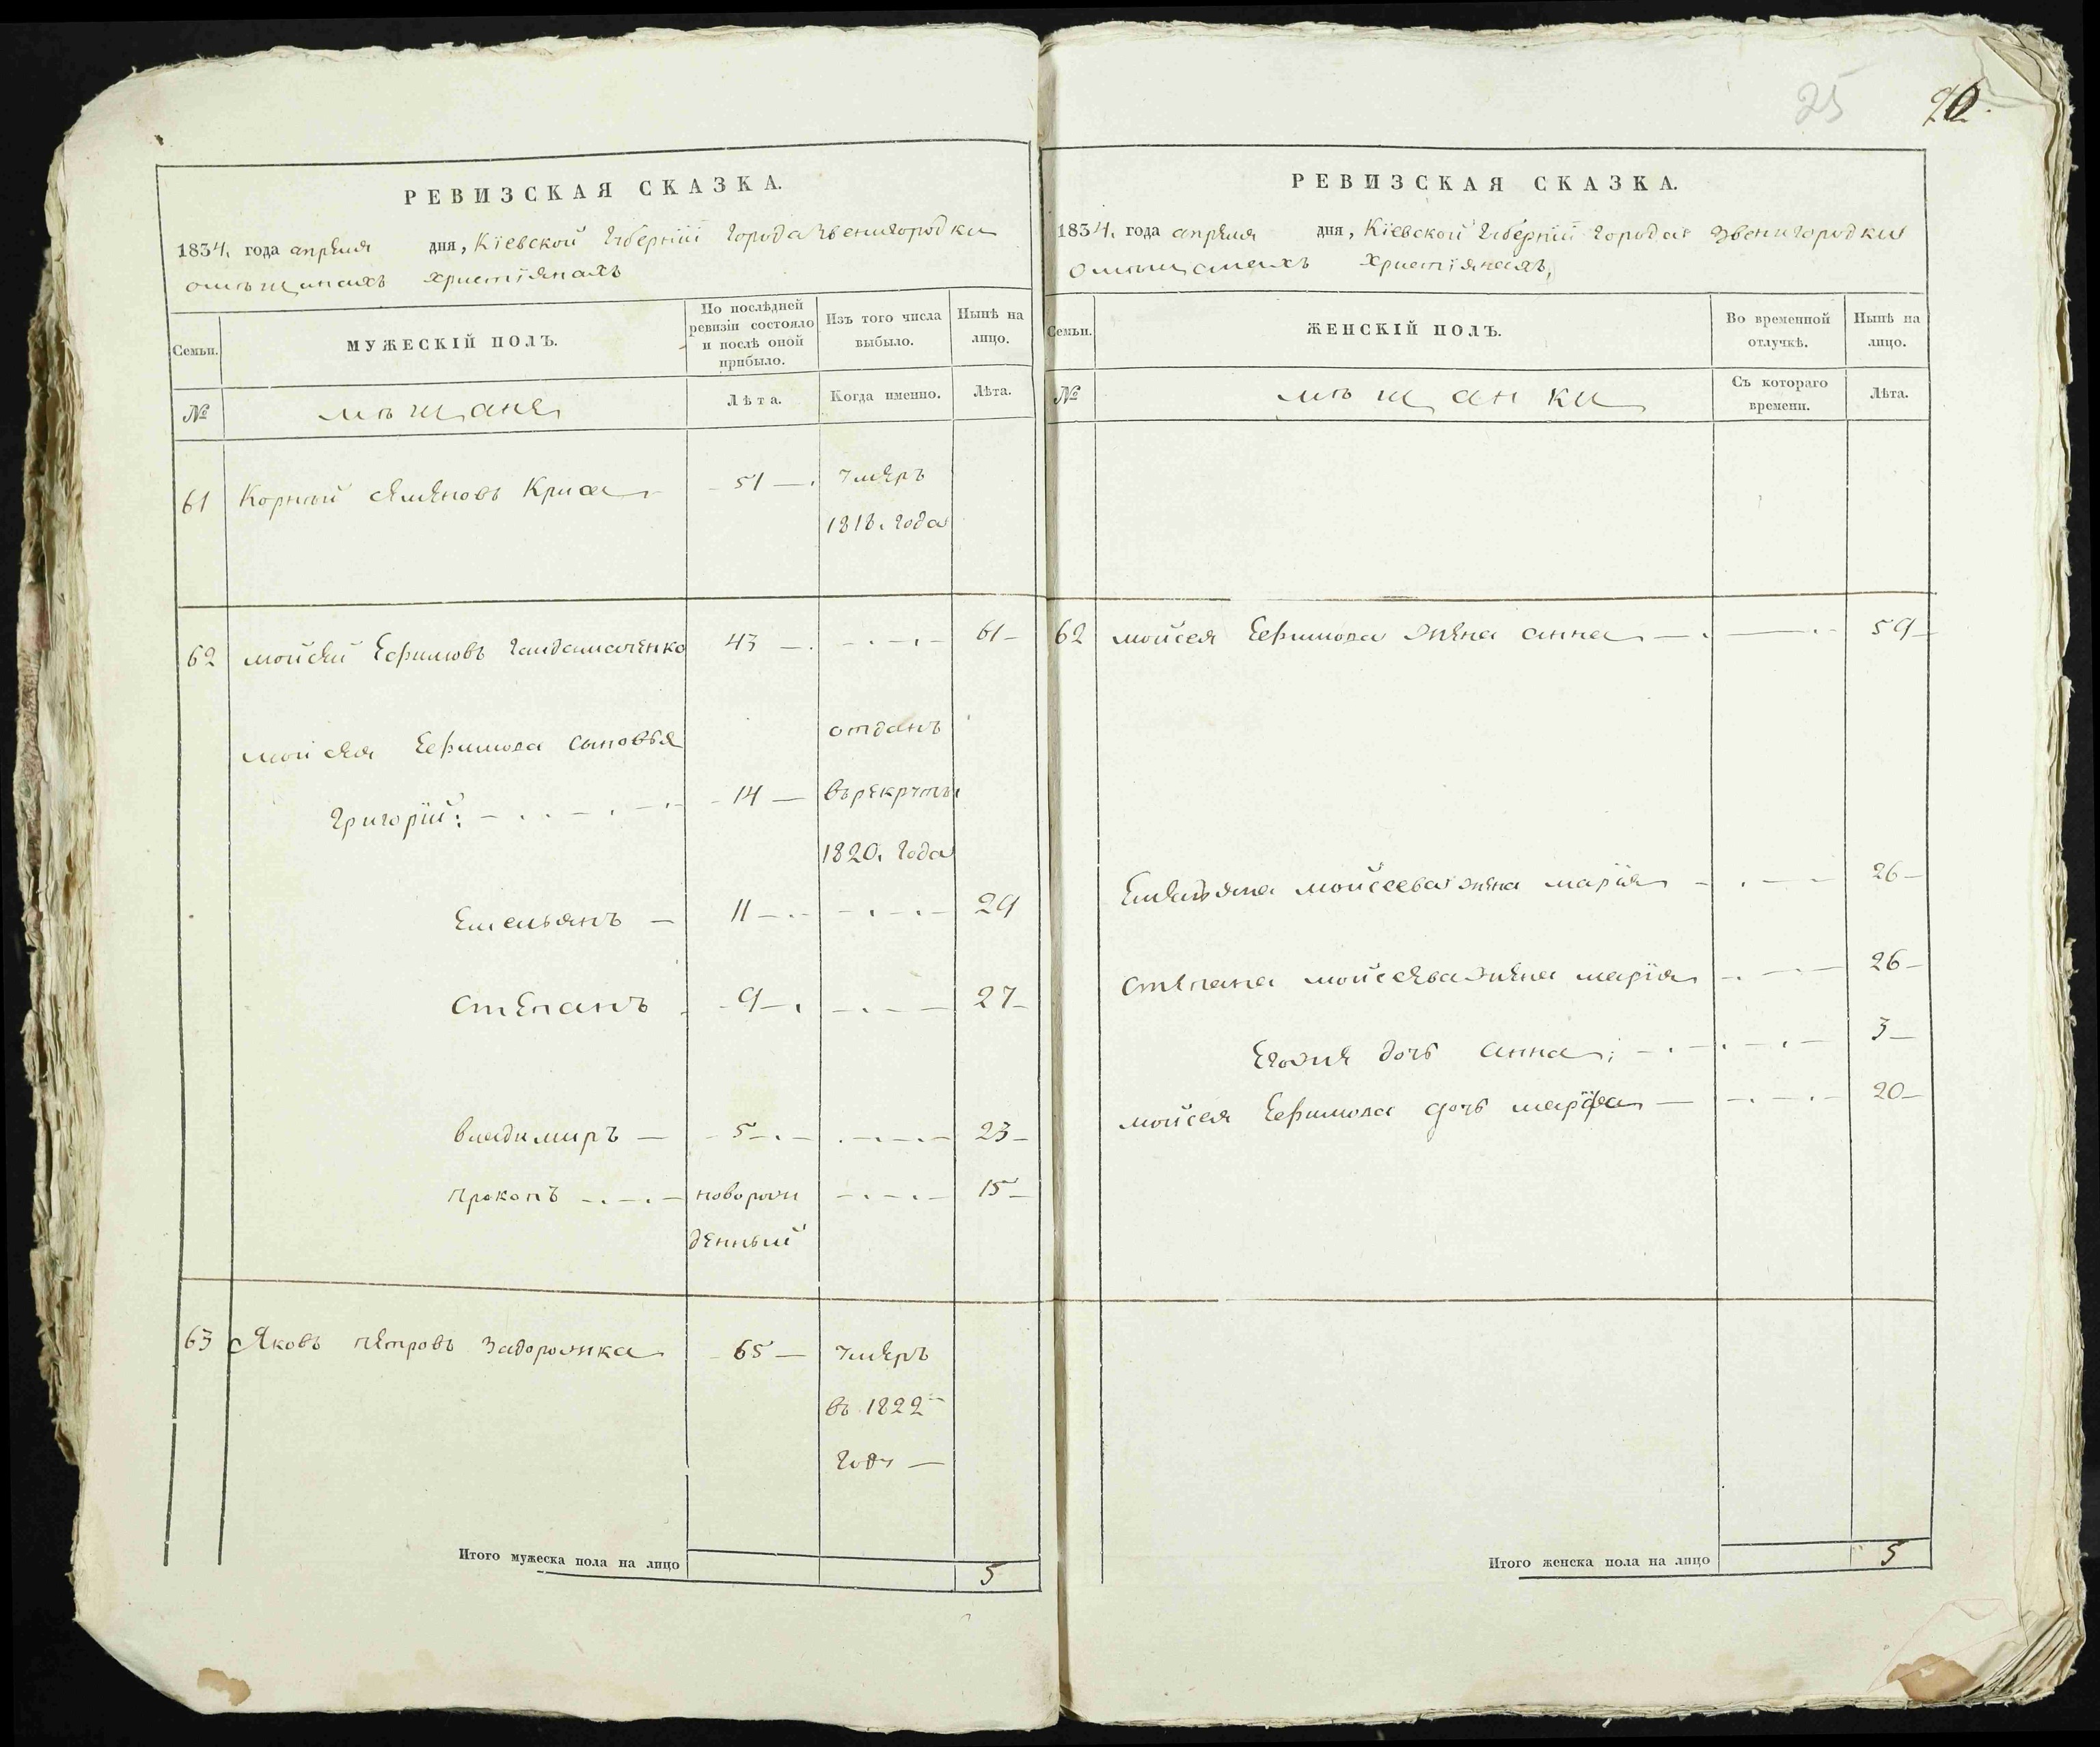 РЕВИЗСКАЯ СКАЗКА.
1834. года апреля дня, Кіевской Губерніи города Звенигородки
омѣщанахъ христіянахъ
Семьи. МУЖЕСКІЙ ПОЛЪ. По послѣдней ревизіи состояло и послѣ оной прибыло. Изъ того числа выбыло. Нынѣ на лицо.
№ мѣщане Лѣта. Когда именно. Лѣта.
61 Корний Семеновъ Криса 51 умеръ
1818. года
62 мойсей Ефимовъ гайдамаченко 43 61
мойсея Ефимова сыновья отданъ
Григорій: 14 върекруты
1820. года
Емельянъ 11 29
степанъ 9 27
владимиръ 5 23
прокопъ новорож 15
денный
63 Яковъ петровъ Задорожка 65 умеръ
въ 1822
году
Итого мужеска пола на лицо 5
25 20
РЕВИЗСКАЯ СКАЗКА.
1834. года апреля дня, Кіевской Губерніи города Звенигородки
омѣщанахъ христіянахъ,
Семьи. ЖЕНСКІЙ ПОЛЪ. Во временной отлучкѣ. Нынѣ на лицо.
№ мѣщанки Съ котораго времени. Лѣта.
62 мойсея Ефимова жена анна 59
Емельяна мойсеева жена марія 26
степана мойсеева жена марія 26
Егоже дочь анна; 3
мойсея Ефимова дочь марфа 20
Итого женска пола на лицо 5